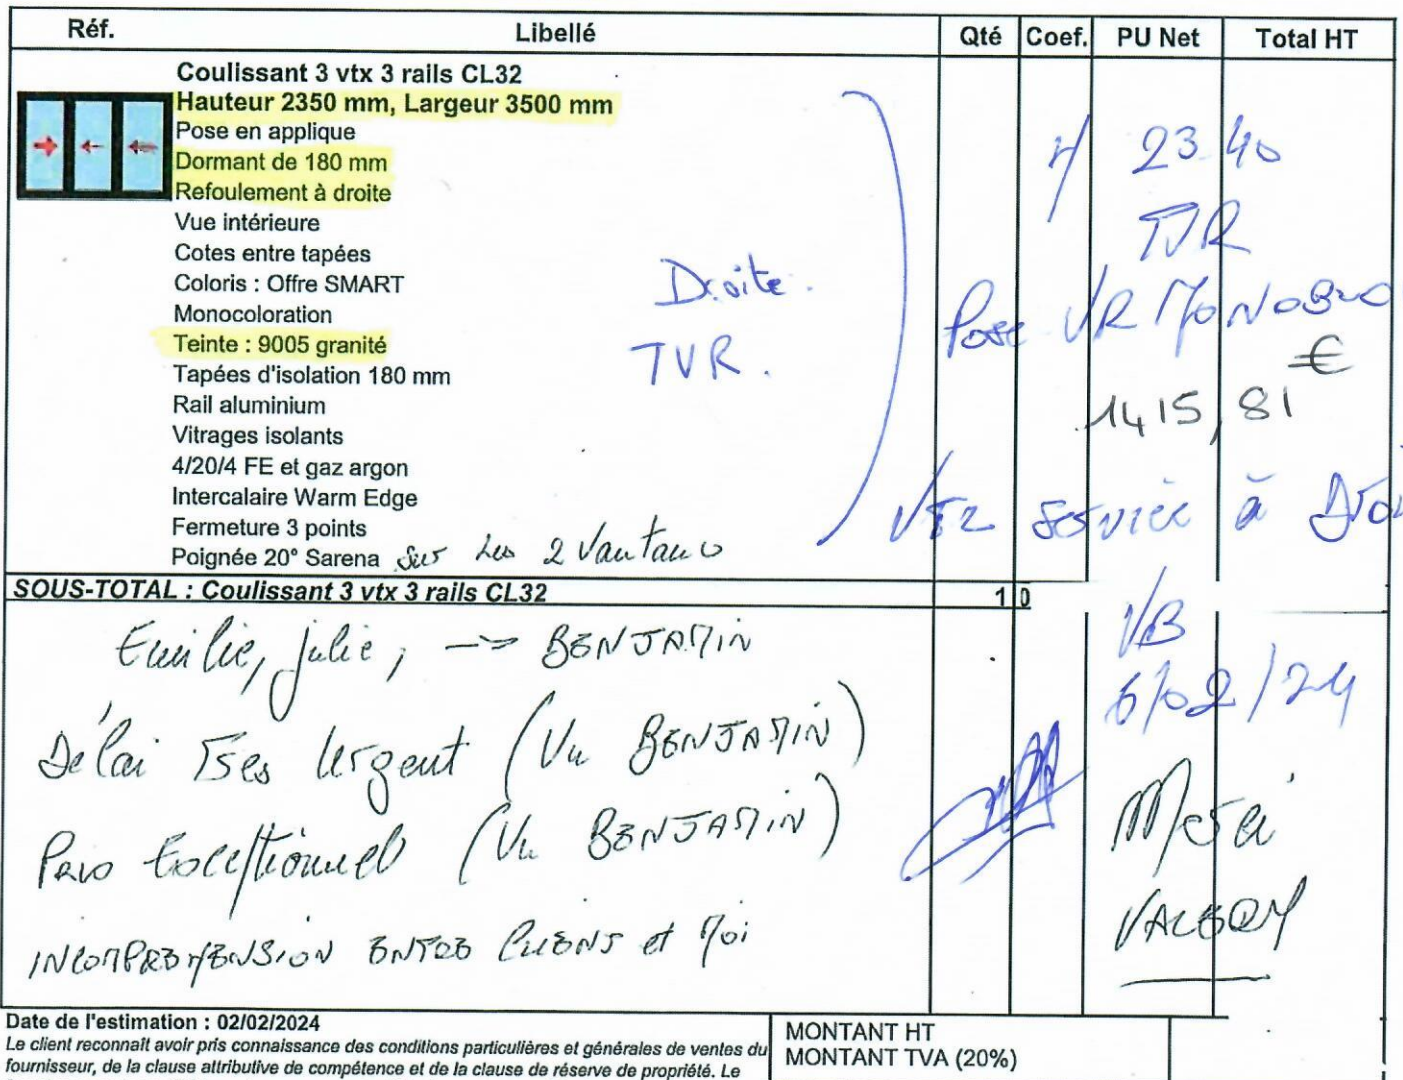 Réf. Libellé Qté Coef. PU Net Total HT
Coulissant 3 vtx 3 rails CL32
Hauteur 2350 mm, Largeur 3500 mm
Pose en applique
Dormant de 180 mm
Refoulement à droite
Vue intérieure
Cotes entre tapées
Coloris : Offre SMART
Monocoloration
Teinte : 9005 granité
Tapées d'isolation 180 mm
Rail aluminium
Vitrages isolants
4/20/4 FE et gaz argon
Intercalaire Warm Edge
Fermeture 3 points
Poignée 20° Sarena sur les 2 Vantaux
Droite.
TVR.
23 40
TVR
Pose VR MONOBLO
€
1415,81
service à Droi
SOUS-TOTAL : Coulissant 3 vtx 3 rails CL32 1 0
Emilie, julie, -> BENJAMIN
Délai Très Urgent (Vu BENJAMIN)
Prix Exceptionnel (Vu BENJAMIN)
INCOMPREHENSION ENTRE CLIENT et Moi
VB
6/02/24
Merci
VALERY
Date de l'estimation : 02/02/2024
Le client reconnaît avoir pris connaissance des conditions particulières et générales de ventes du
fournisseur, de la clause attributive de compétence et de la clause de réserve de propriété. Le
MONTANT HT
MONTANT TVA (20%)